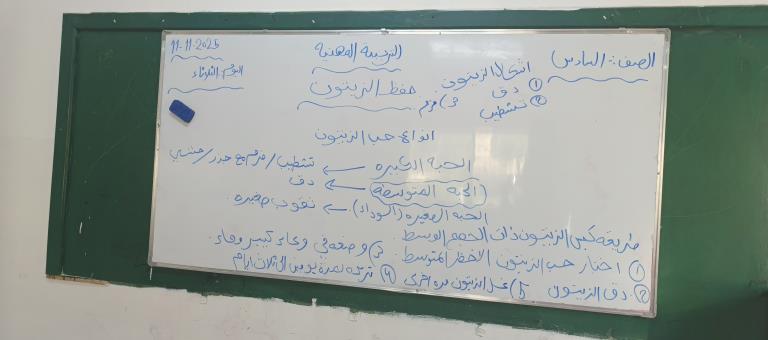 الصف: السادس
التربية المهنية
11-11-2025
اليوم: الثلاثاء
حفظ الزيتون
اشكال الزيتون
① دق
② تشطيب
3)
انواع حب الزيتون
الحبة الكبيرة ← تشطيب/ مع جزر/
الحبة المتوسطة ← دق
الحبة الصغيرة (السوداء) ← ثقوب صغيرة.
طريقة كبس الزيتون ذات الحجم الوسط.
① اختار حب الزيتون الأخضر المتوسط.
② دق الزيتون
3) وضعه في وعاء كبير وماء.
④ تركه لمدة يومين الى ثلاث ايام
5) غسل الزيتون مرة اخرى